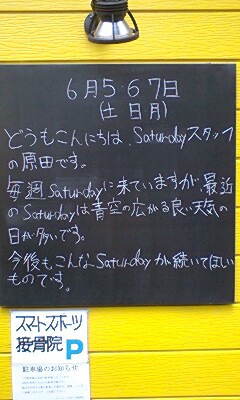 6月5・6・7日
(土日月)
どうもこんにちは、Saturdayスタッフ
の原田です。
毎週Saturdayに来ていますが最近
のSaturdayは青空の広がる良い天気の
日が多いです。
今後もこんなSaturdayが続いてほしい
ものです。
スマートスポーツ
接骨院 P
駐車場のお知らせ